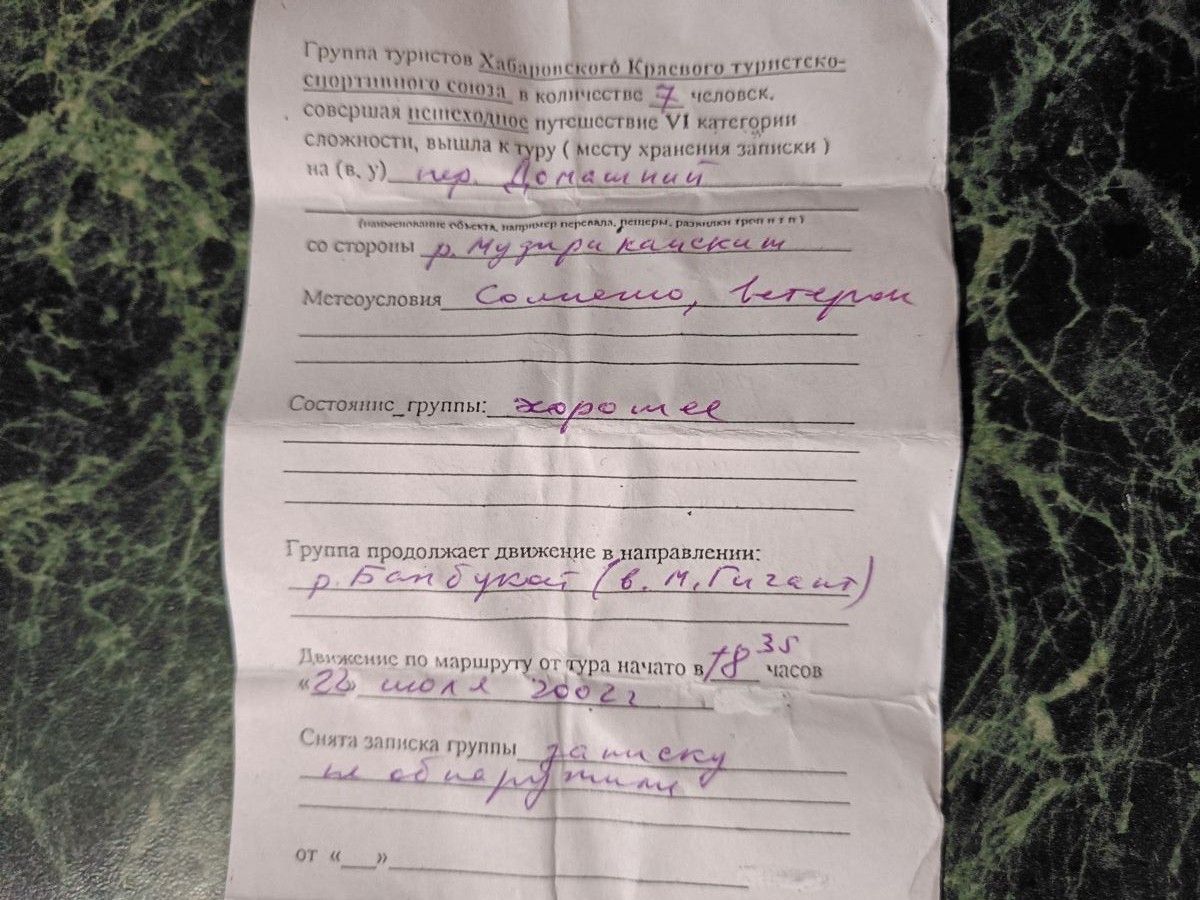 Группа туристов Хабаровского Краевого туристско-
спортивного союза в количестве 7 человек,
совершая пешеходное путешествие VI категории
сложности, вышла к туру ( месту хранения записки )
на (в, у) пер. Домашний
(наименование объекта, например перевала, пещеры, развилки троп и т п )
со стороны р. Мудирикайский
Метеоусловия Солнечно, ветерок
Состояние_группы: хорошее
Группа продолжает движение в направлении:
р. Бамбукой (в. М. Гигант)
Движение по маршруту от тура начато в 18 35 часов
«22» июля 2002г
Снята записка группы записку
не обнаружили
от «___»